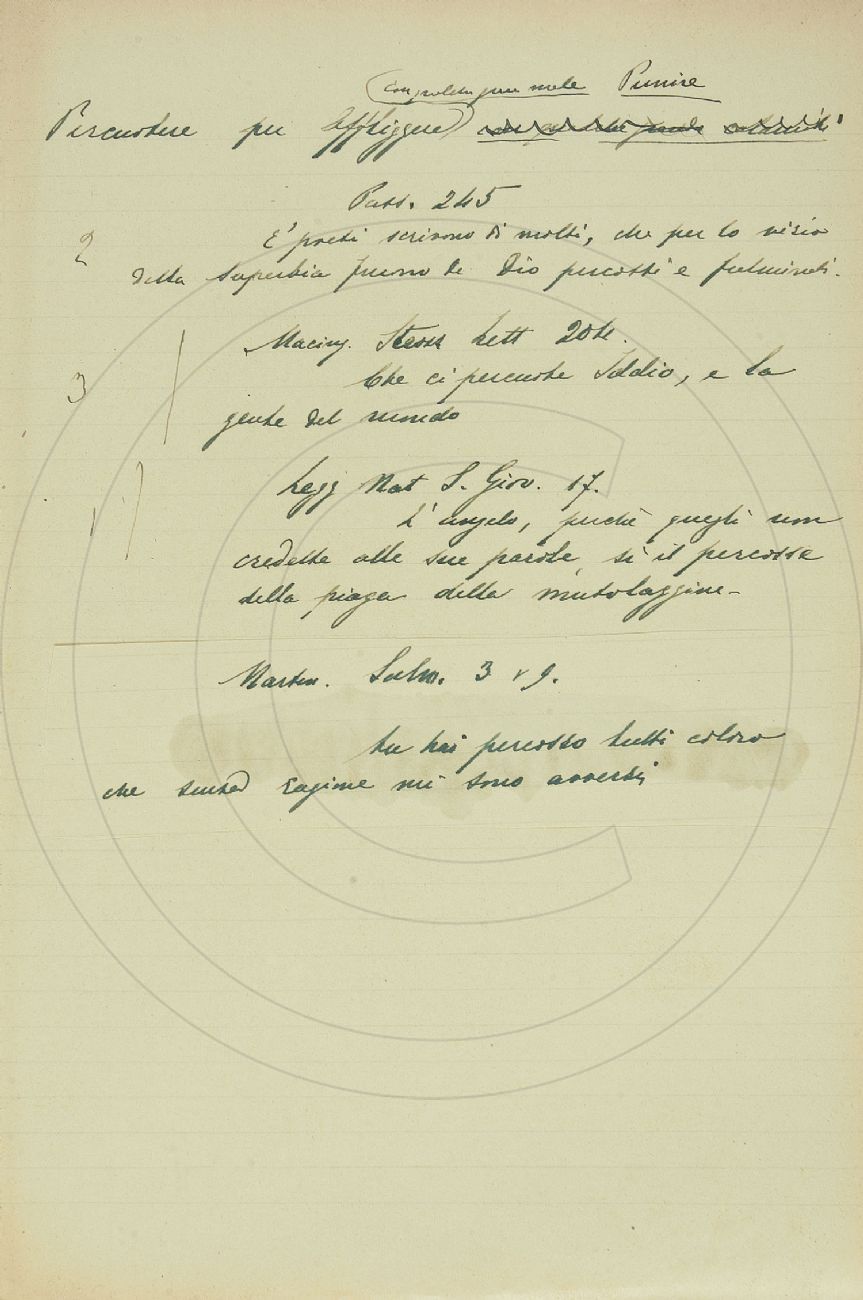 con qualche gran male Punire
Percuotere per Affliggere)
Pass. 245
2 E' poeti scrivono di molti, che per lo vizio
della superbia furono da Dio percossi e fulminati.
Macing. Strozzi Lett 204.
3 Che ci percuote Iddio, e la
gente del mondo
Legg Nat S. Giov. 17.
1 L'angelo, perchè quegli non
credette alle sue parole, si il percosse
della piaga della mutolaggine -
Martin. Salm. 3 v 9.
tu hai percosso tutti coloro
che senza ragione mi sono avversi